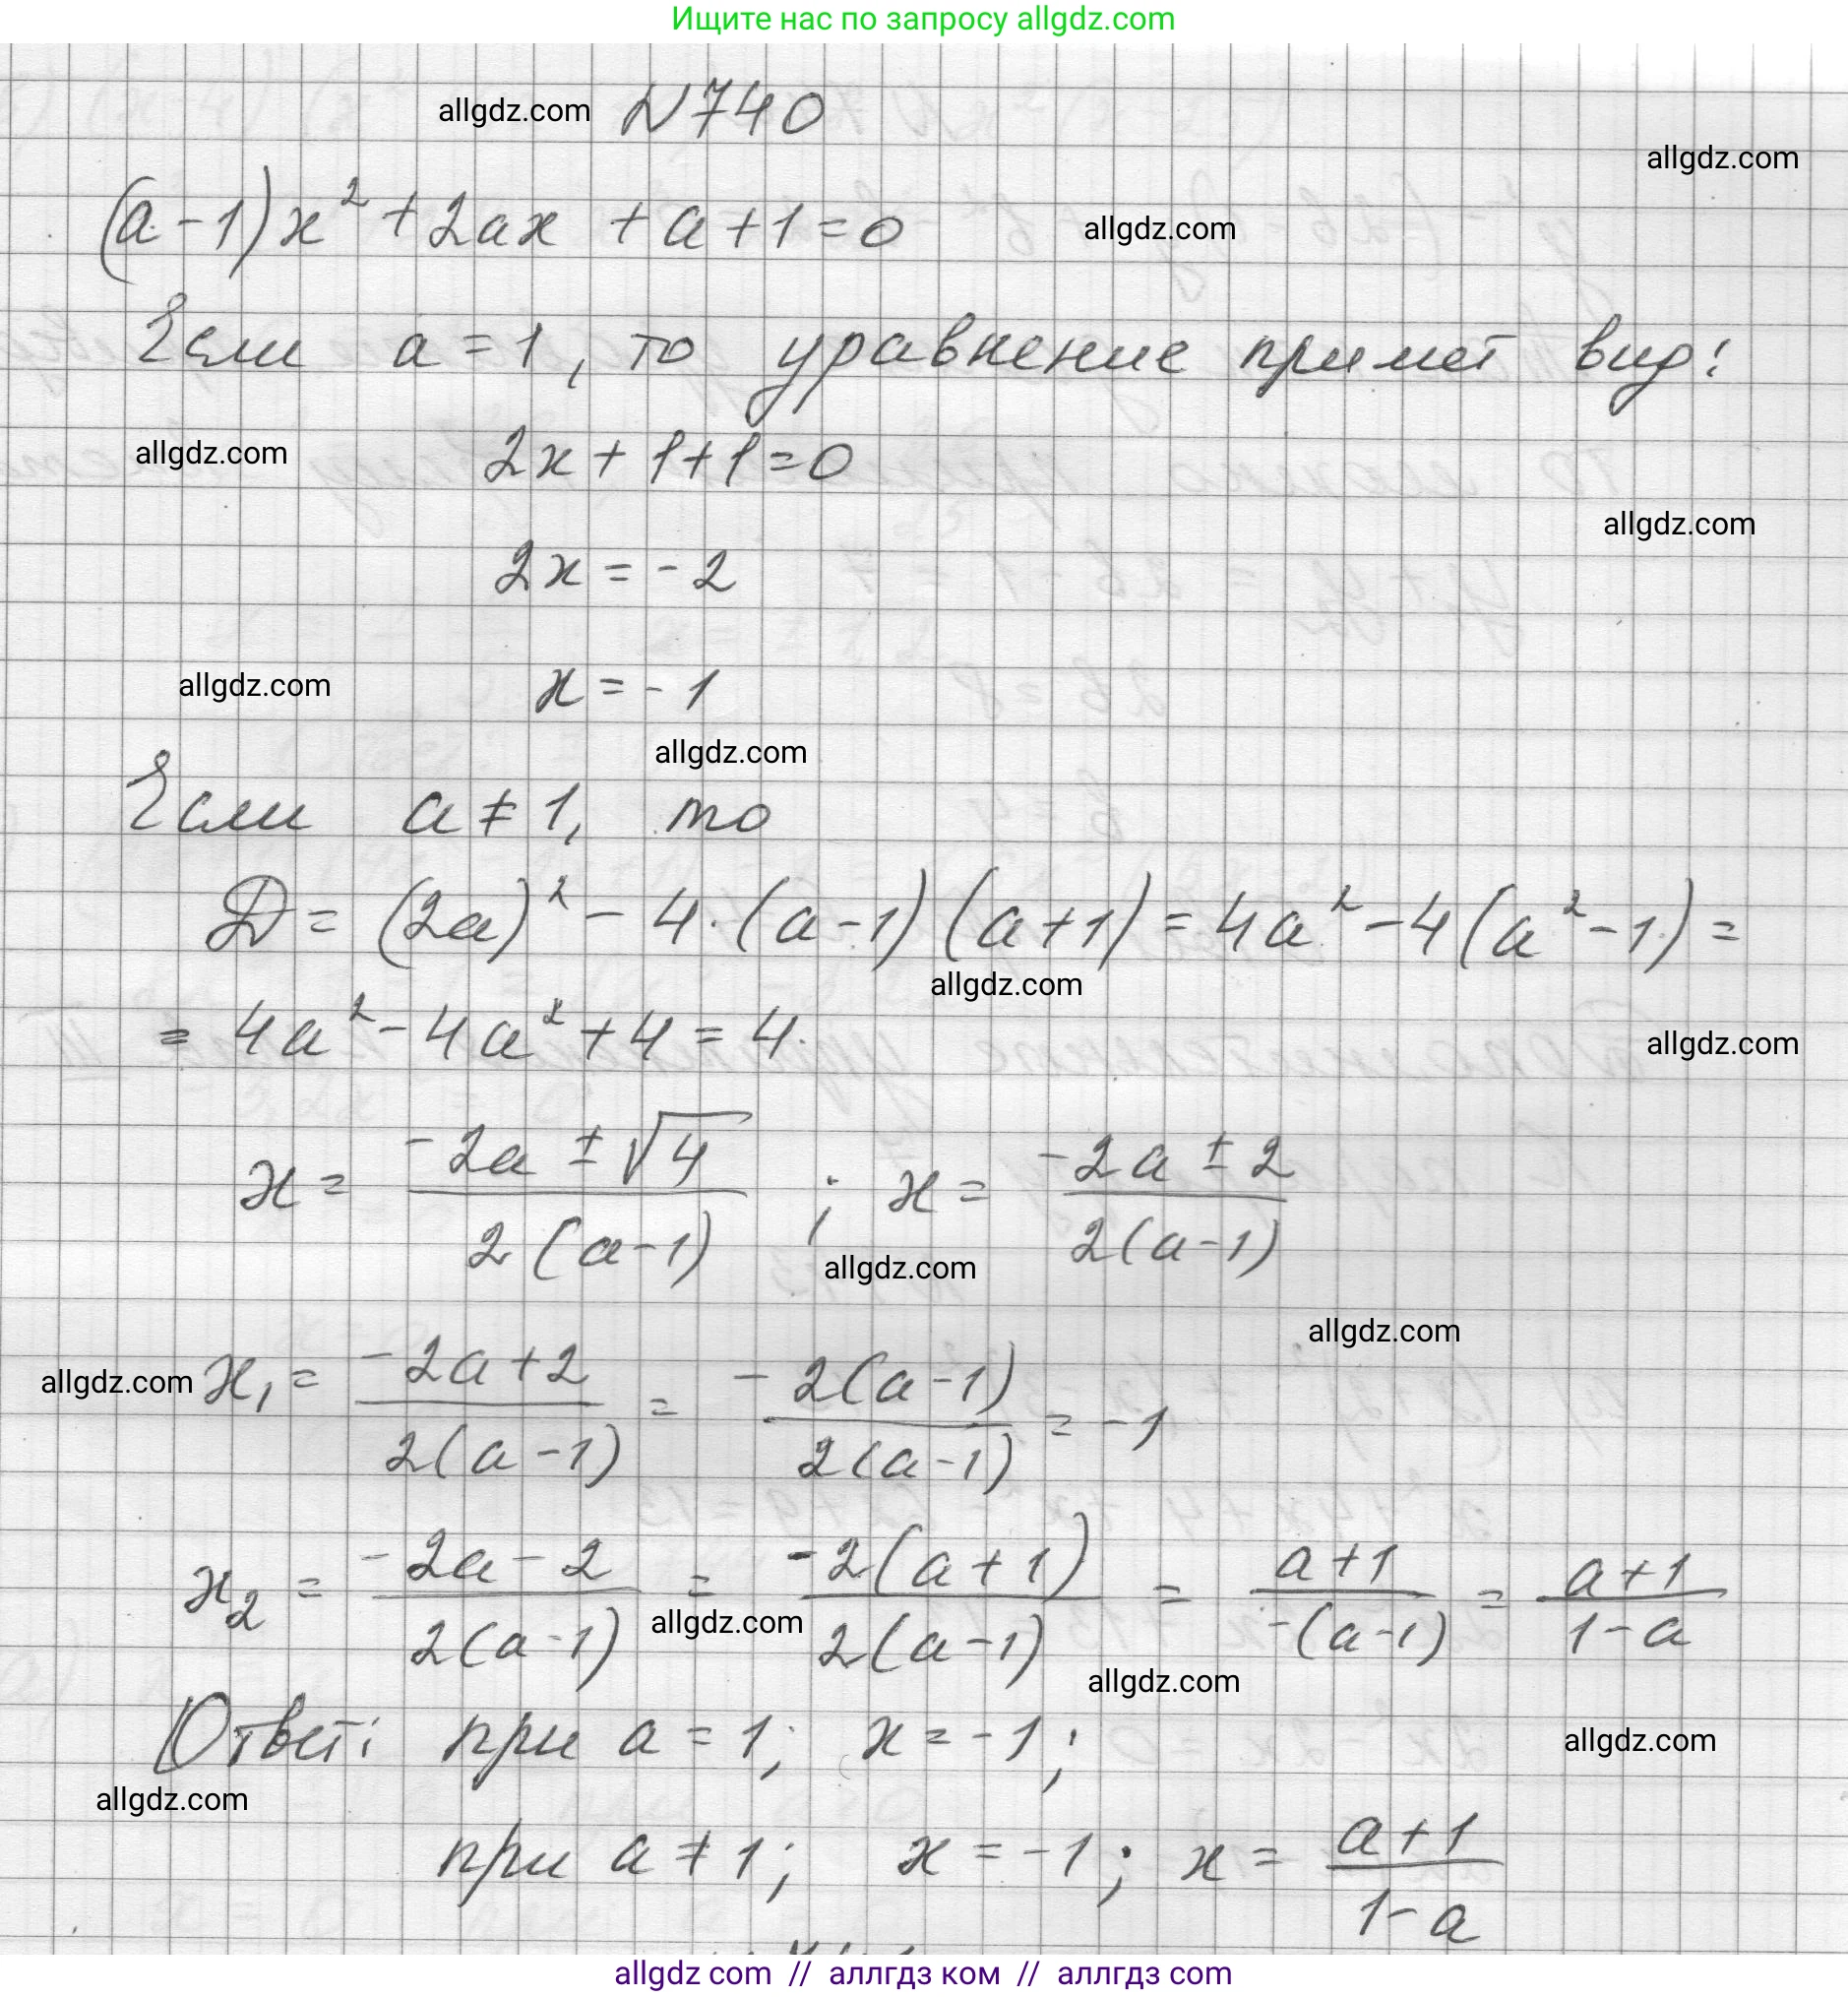 Ищите нас по запросу allgdz.com
allgdz.com N 740
allgdz.com
(a-1)x² + 2ax + a + 1 = 0 allgdz.com
Если a = 1, то уравнение примет вид:
allgdz.com 2x + 1 + 1 = 0
allgdz.com
2x = -2
allgdz.com x = -1
allgdz.com
Если a ≠ 1, то
D = (2a)² - 4·(a-1)(a+1) = 4a² - 4(a²-1) =
allgdz.com
= 4a² - 4a² + 4 = 4.
allgdz.com
x = (-2a ± √4)/(2(a-1)) ; x = (-2a ± 2)/(2(a-1))
allgdz.com
allgdz.com
allgdz.com x₁ = (-2a+2)/(2(a-1)) = -2(a-1)/(2(a-1)) = -1
x₂ = (-2a-2)/(2(a-1)) = -2(a+1)/(2(a-1)) = (a+1)/(-(a-1)) = (a+1)/(1-a)
allgdz.com
allgdz.com
Ответ: при a = 1; x = -1;
allgdz.com
allgdz.com
при a ≠ 1; x = -1; x = (a+1)/(1-a)
allgdz com // аллгдз ком // аллгдз com